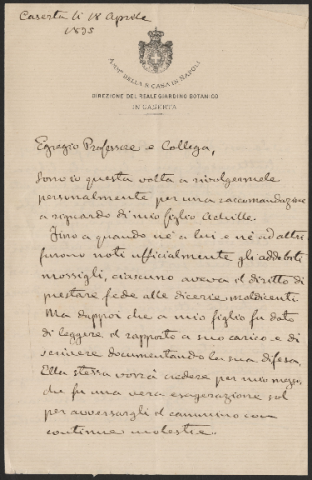 Caserta li 18 Aprile
1895
AMM.NE DELLA R. CASA DI NAPOLI
DIREZIONE DEL REALE GIARDINO BOTANICO
IN CASERTA
Egregio Professore e Collega,
Sono io questa volta a rivolgermele
personalmente per una raccomandazione
a riguardo di mio figlio Achille.
Fino a quando nè a lui e nè ad altri
furono noti ufficialmente gli addebiti
mossigli, ciascuno aveva il diritto di
prestare fede alle dicerie maldicenti
Ma dappoi che a mio figlio fu dato
di leggere il rapporto a suo carico e di
scrivere documentando la sua difesa,
Ella stessa vorrà credere per mio mezzo,
che fu una vera esagerazione sol
per avversargli il cammino con
continue molestie.